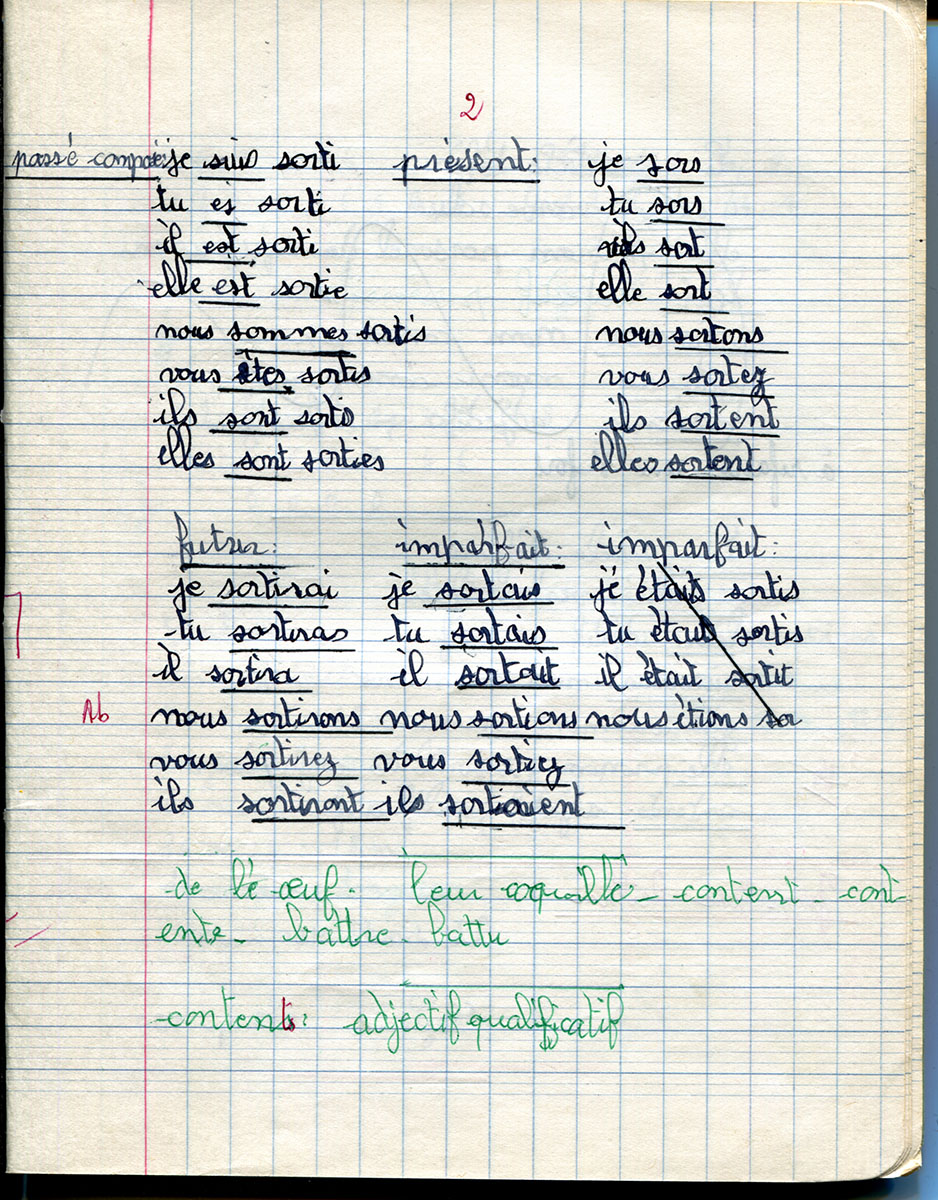 2
passé composé: je suis sorti présent: je sors
tu es sorti tu sors
il est sorti ils sort
elle est sortie elle sort
nous sommes sortis nous sortons
vous êtes sortis vous sortez
ils sont sortis ils sortent
elles sont sorties elles sortent
futur: imparfait: imparfait:
je sortirai je sortais j'étais sortis
tu sortiras tu sortais tu étais sortis
il sortira il sortait il était sortit
nous sortirons nous sortions nous étions sor
vous sortirez vous sortiez
ils sortiront ils sortaient
de l'œuf. leur coquille - content - cont-
ente - battre - battu
contents: adjectif qualificatif